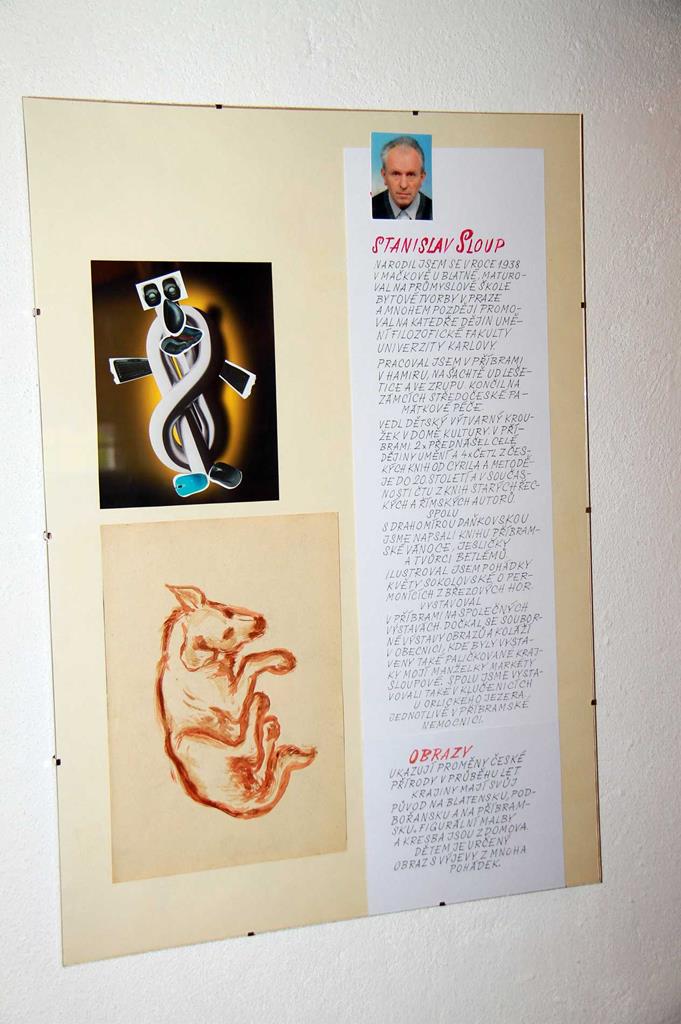 STANISLAV SLOUP
NARODIL JSEM SE V ROCE 1938
V MAČKOVĚ U BLATNÉ, MATURO-
VAL NA PRŮMYSLOVÉ ŠKOLE
BYTOVÉ TVORBY V PRAZE
A MNOHEM POZDĚJI PROMO-
VAL NA KATEDŘE DĚJIN UMĚ-
NÍ FILOZOFICKÉ FAKULTY
UNIVERZITY KARLOVY.
PRACOVAL JSEM V PŘÍBRAMI
V HAMIRU, NA ŠACHTĚ UD LEŠE-
TICE A VE ZRUPU. KONČIL NA
ZÁMCÍCH STŘEDOČESKÉ PA-
MÁTKOVÉ PÉČE.
VEDL DĚTSKÝ VÝTVARNÝ KROU-
ŽEK V DOMĚ KULTURY V PŘÍ-
BRAMI. 2× PŘEDNÁŠEL CELÉ
DĚJINY UMĚNÍ A 4× ČETL Z ČES-
KÝCH KNIH OD CYRILA A METODĚ-
JE DO 20. STOLETÍ A V SOUČAS-
NOSTI ČTU Z KNIH STARÝCH ŘEC-
KÝCH A ŘÍMSKÝCH AUTORŮ.
SPOLU
S DRAHOMÍROU DAŇKOVSKOU
JSME NAPSALI KNIHU PŘÍBRAM-
SKÉ VÁNOCE, JESLIČKY
A TVŮRCI BETLÉMŮ.
ILUSTROVAL JSEM POHÁDKY
KVĚTY SOKOLOVSKÉ O PER-
MONÍCÍCH Z BŘEZOVÝCH HOR.
VYSTAVOVAL
V PŘÍBRAMI NA SPOLEČNÝCH
VÝSTAVÁCH DOČKAL SE SOUBOR-
NÉ VÝSTAVY OBRAZŮ A KOLÁŽÍ
V OBECNICI, KDE BYLY VYSTA-
VENY TAKÉ PALIČKOVANÉ KRAJ-
KY MOJÍ MANŽELKY MARKÉTY
SLOUPOVÉ. SPOLU JSME VYSTA-
VOVALI TAKÉ V KLUČENICÍCH
U ORLICKÉHO JEZERA,
JEDNOTLIVĚ V PŘÍBRAMSKÉ
NEMOCNICI.
OBRAZY
UKAZUJÍ PROMĚNY ČESKÉ
PŘÍRODY V PRŮBĚHU LET
KRAJINY MAJÍ SVŮJ
PŮVOD NA BLATENSKU, POD-
BOŘANSKU A NA PŘÍBRAM-
SKU. FIGURÁLNÍ MALBY
A KRESBA JSOU Z DOMOVA.
DĚTEM JE URČENÝ
OBRAZ S VÝJEVY Z MNOHA
POHÁDEK.